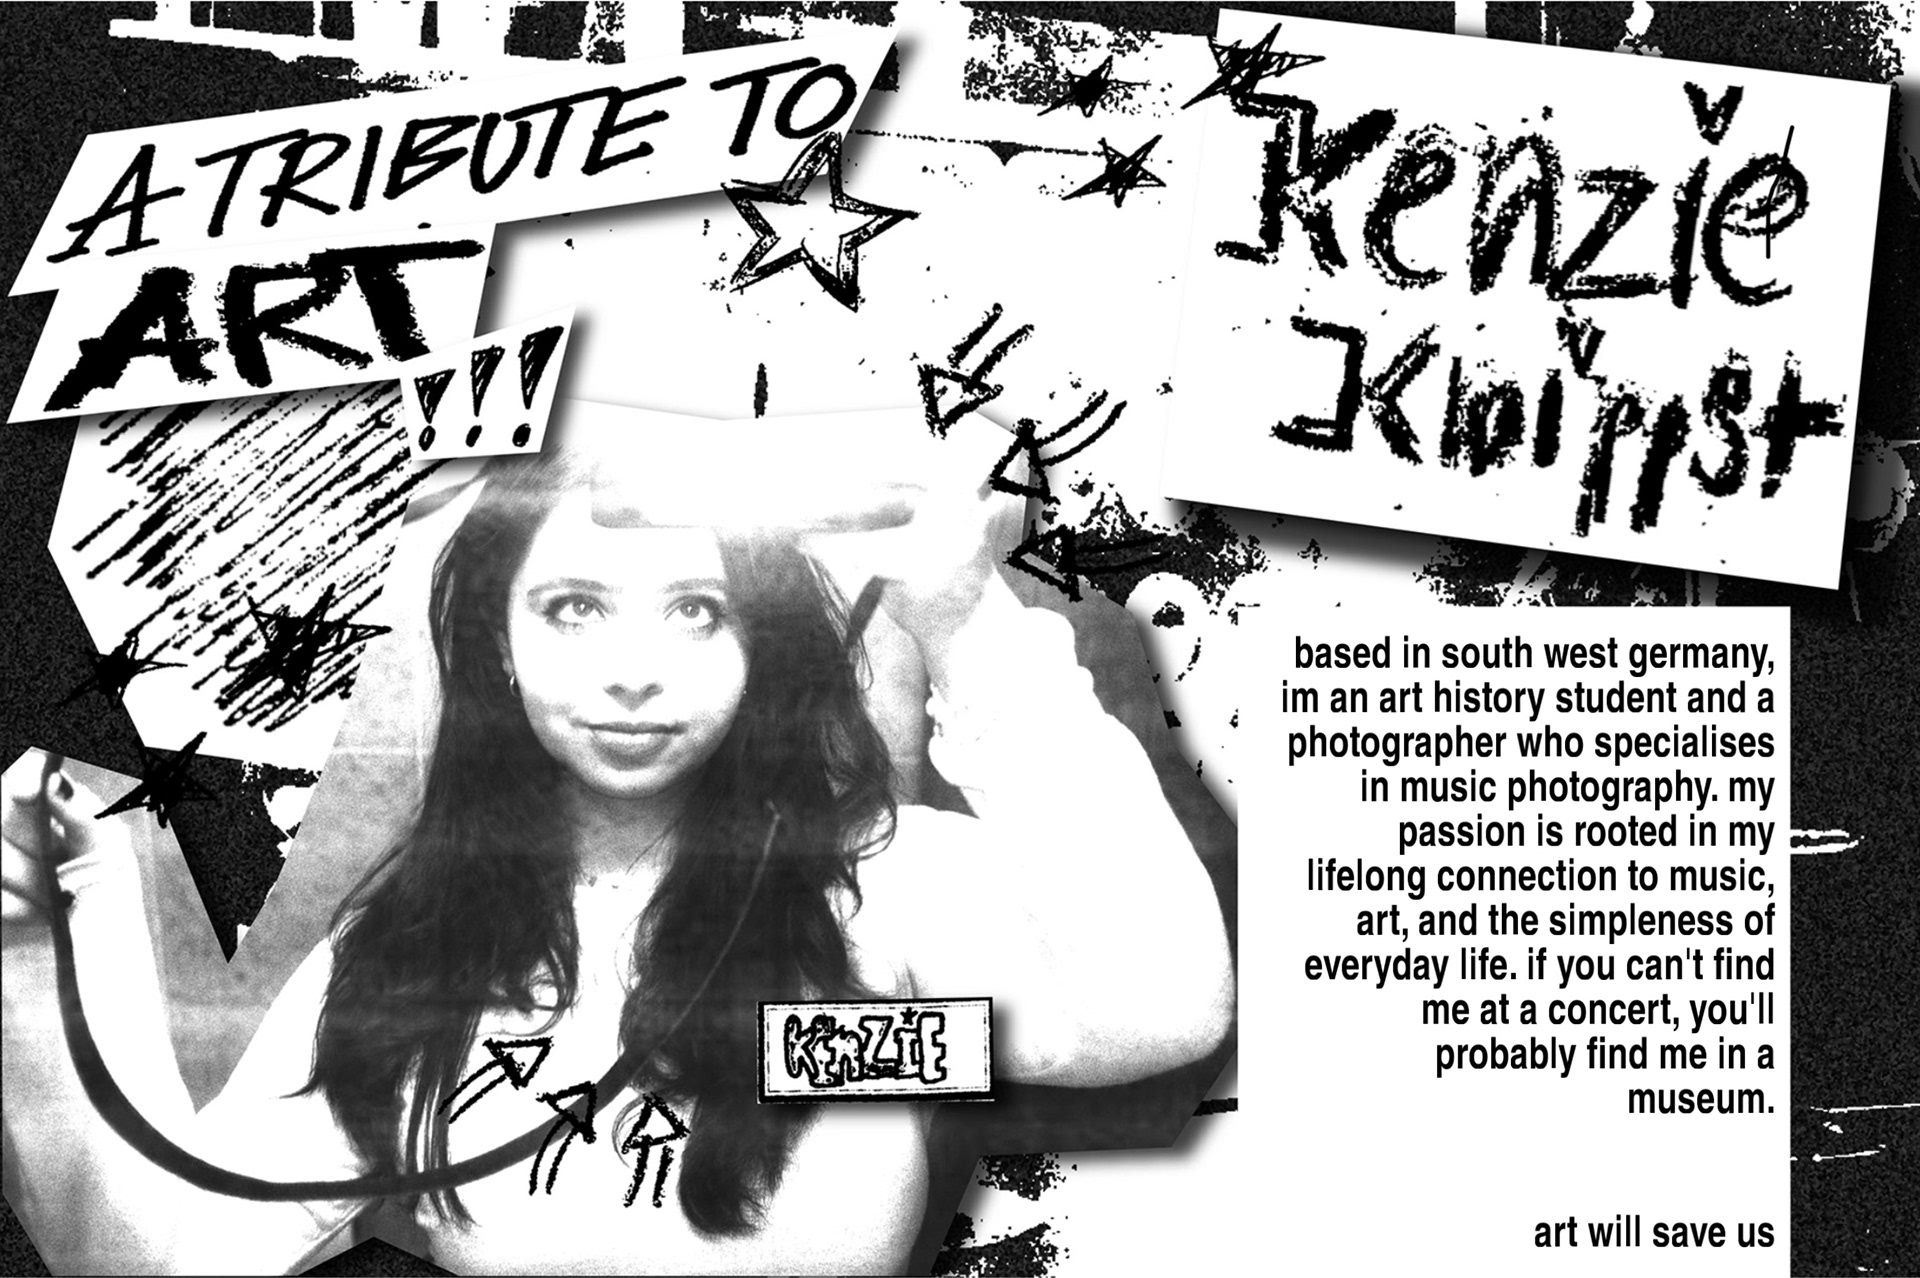 A TRIBUTE TO
ART
!!!
Kenzie
Knippst
based in south west germany,
im an art history student and a
photographer who specialises
in music photography. my
passion is rooted in my
lifelong connection to music,
art, and the simpleness of
everyday life. if you can't find
me at a concert, you'll
probably find me in a
museum.
KENZiE
art will save us